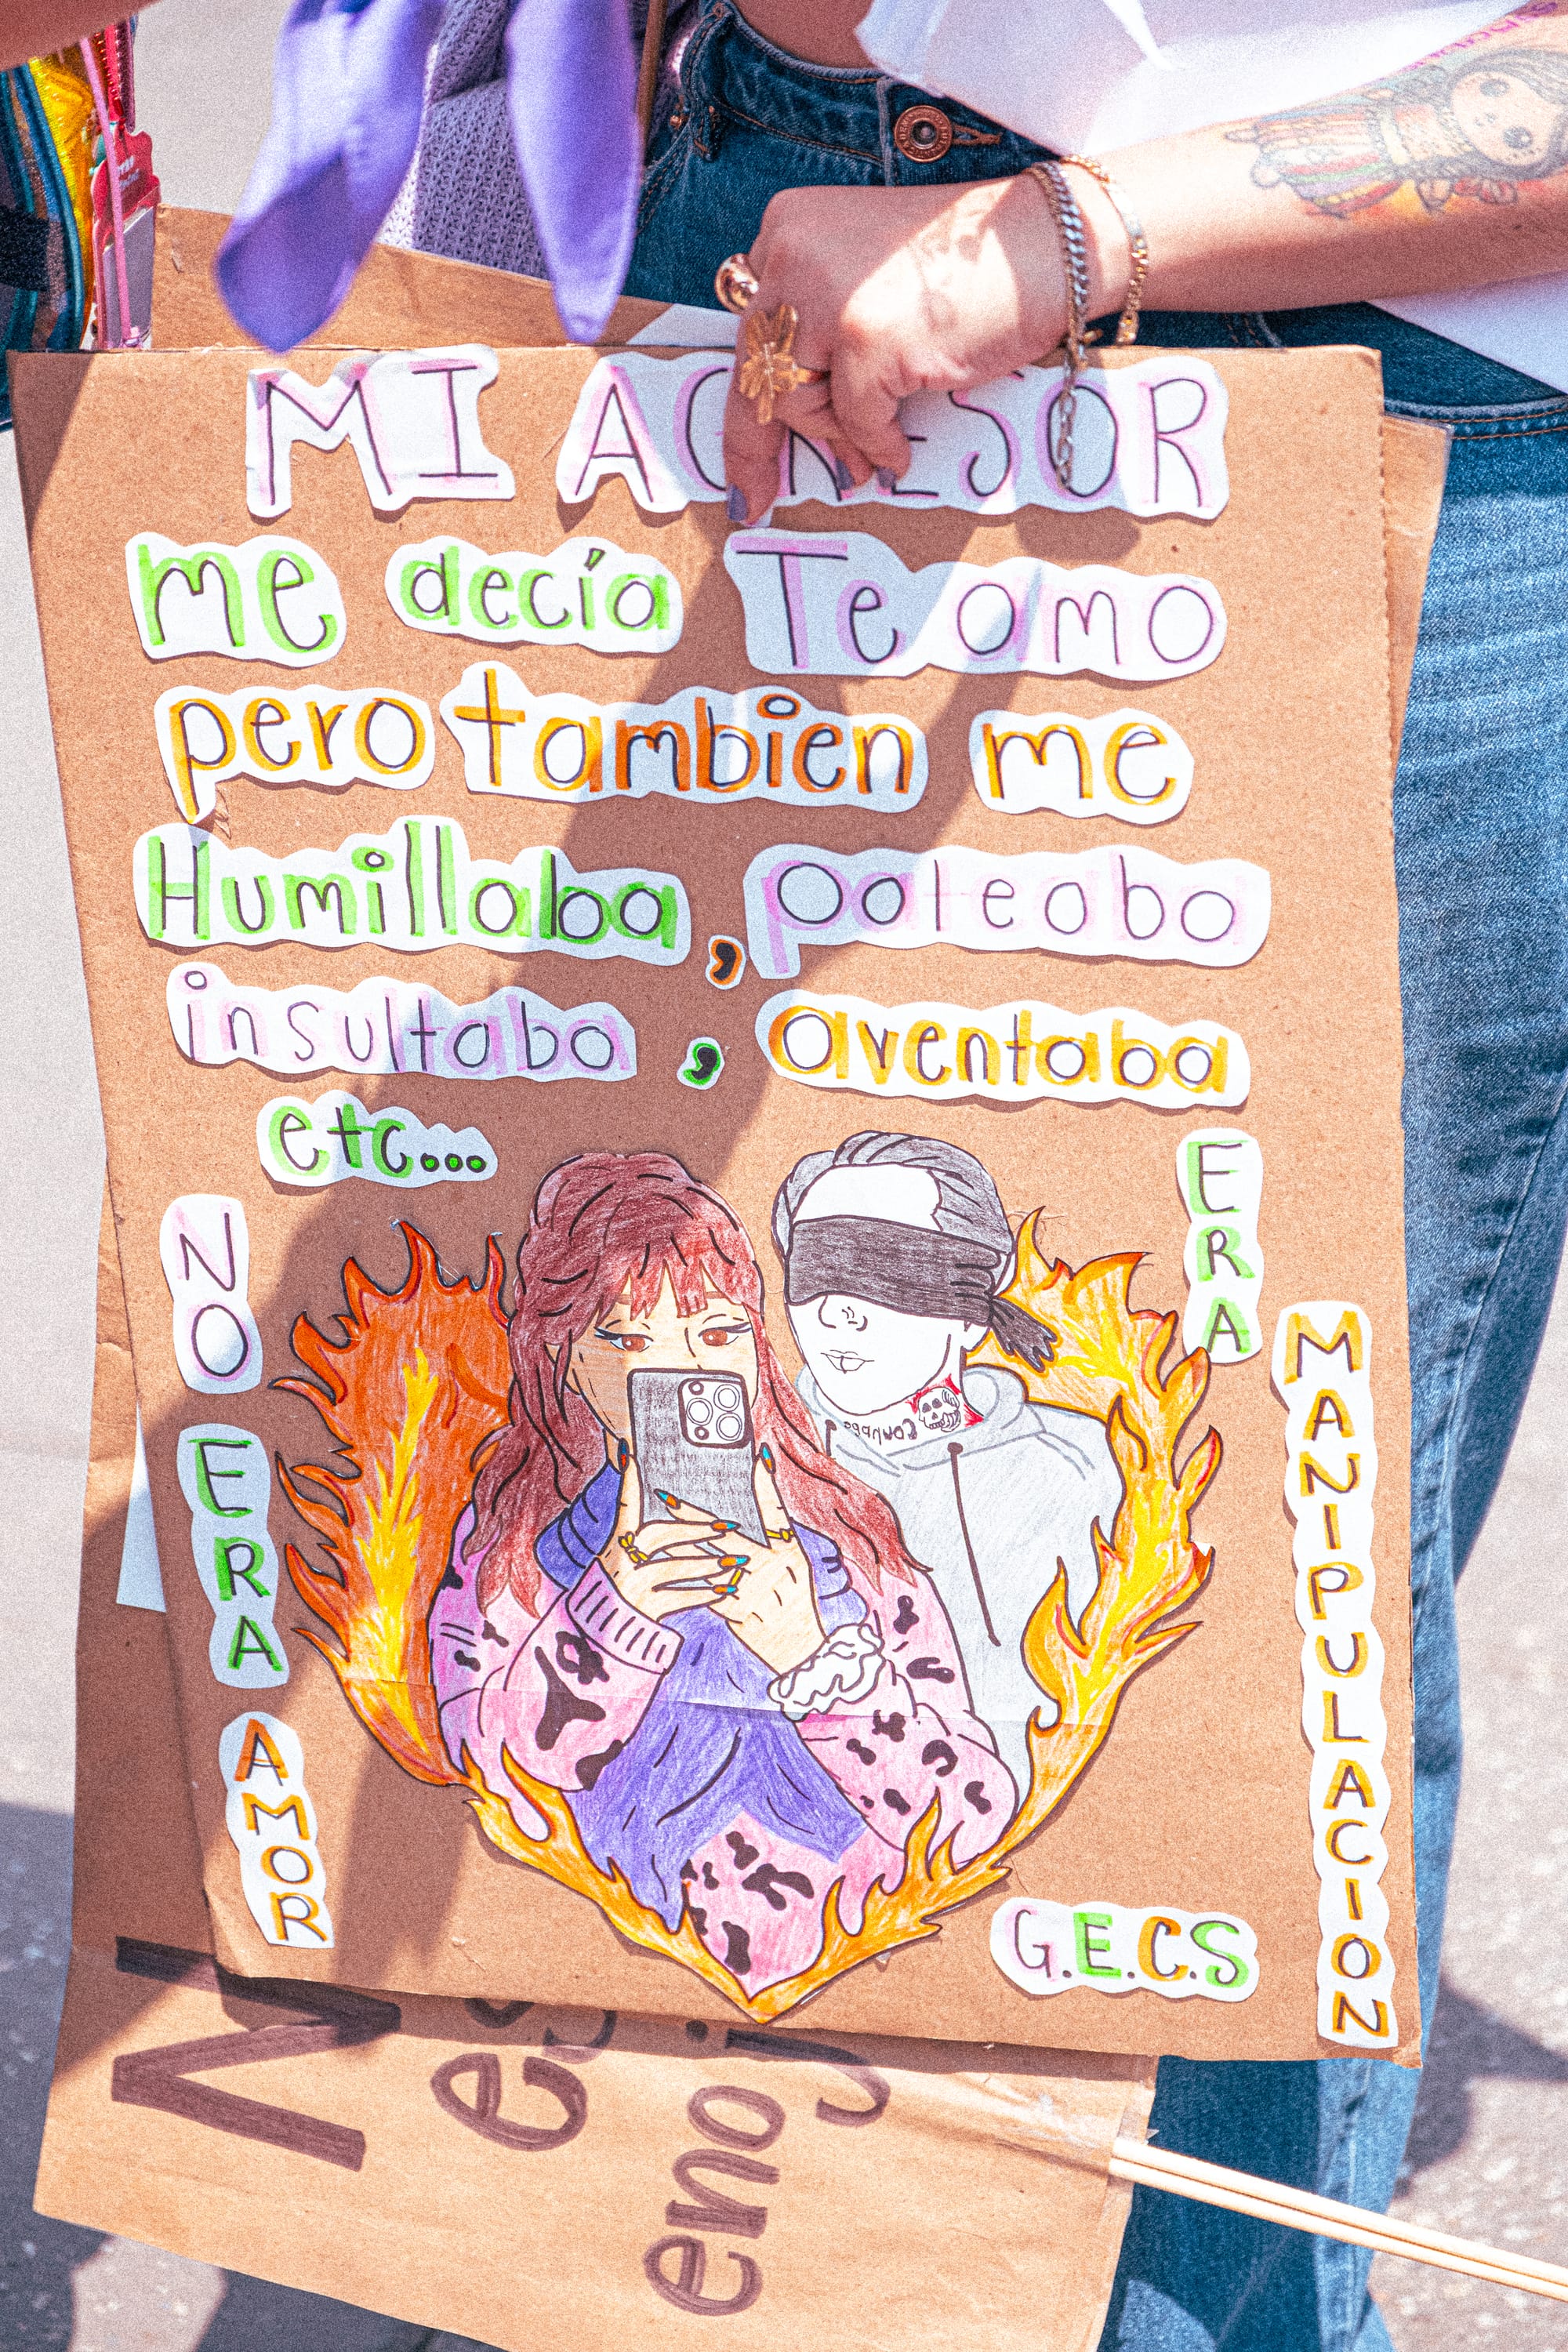 MI AGRESOR
me decía Te amo
pero tambien me
Humillaba, pateaba
insultaba, aventaba
etc...
NO
ERA
AMOR
ERA
MANIPULACION
G.E.C.S